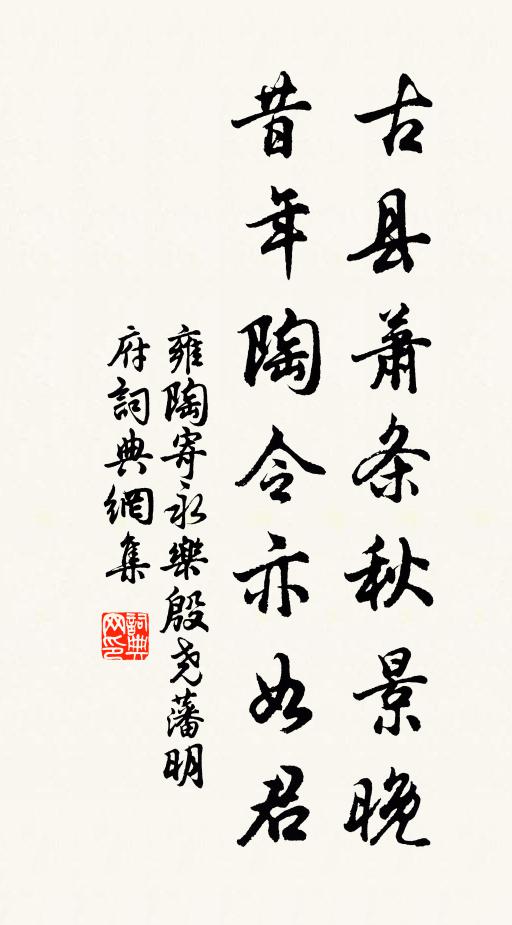 古县蕭条秋景晚
昔年陶令亦如君
雍陶寄永樂殷尧藩明
府詞典網集
詞典网印